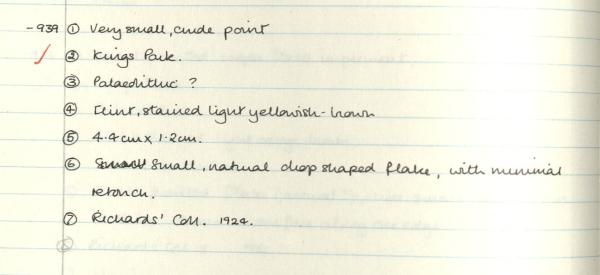 -939 ① Very small, crude point
② Kings Park.
③ Palaeolithic ?
④ Flint, stained light yellowish-brown
⑤ 4.4cm x 1.2cm.
⑥ Small, natural drop shaped flake, with minimal
retouch.
⑦ Richards' Coll. 1924.